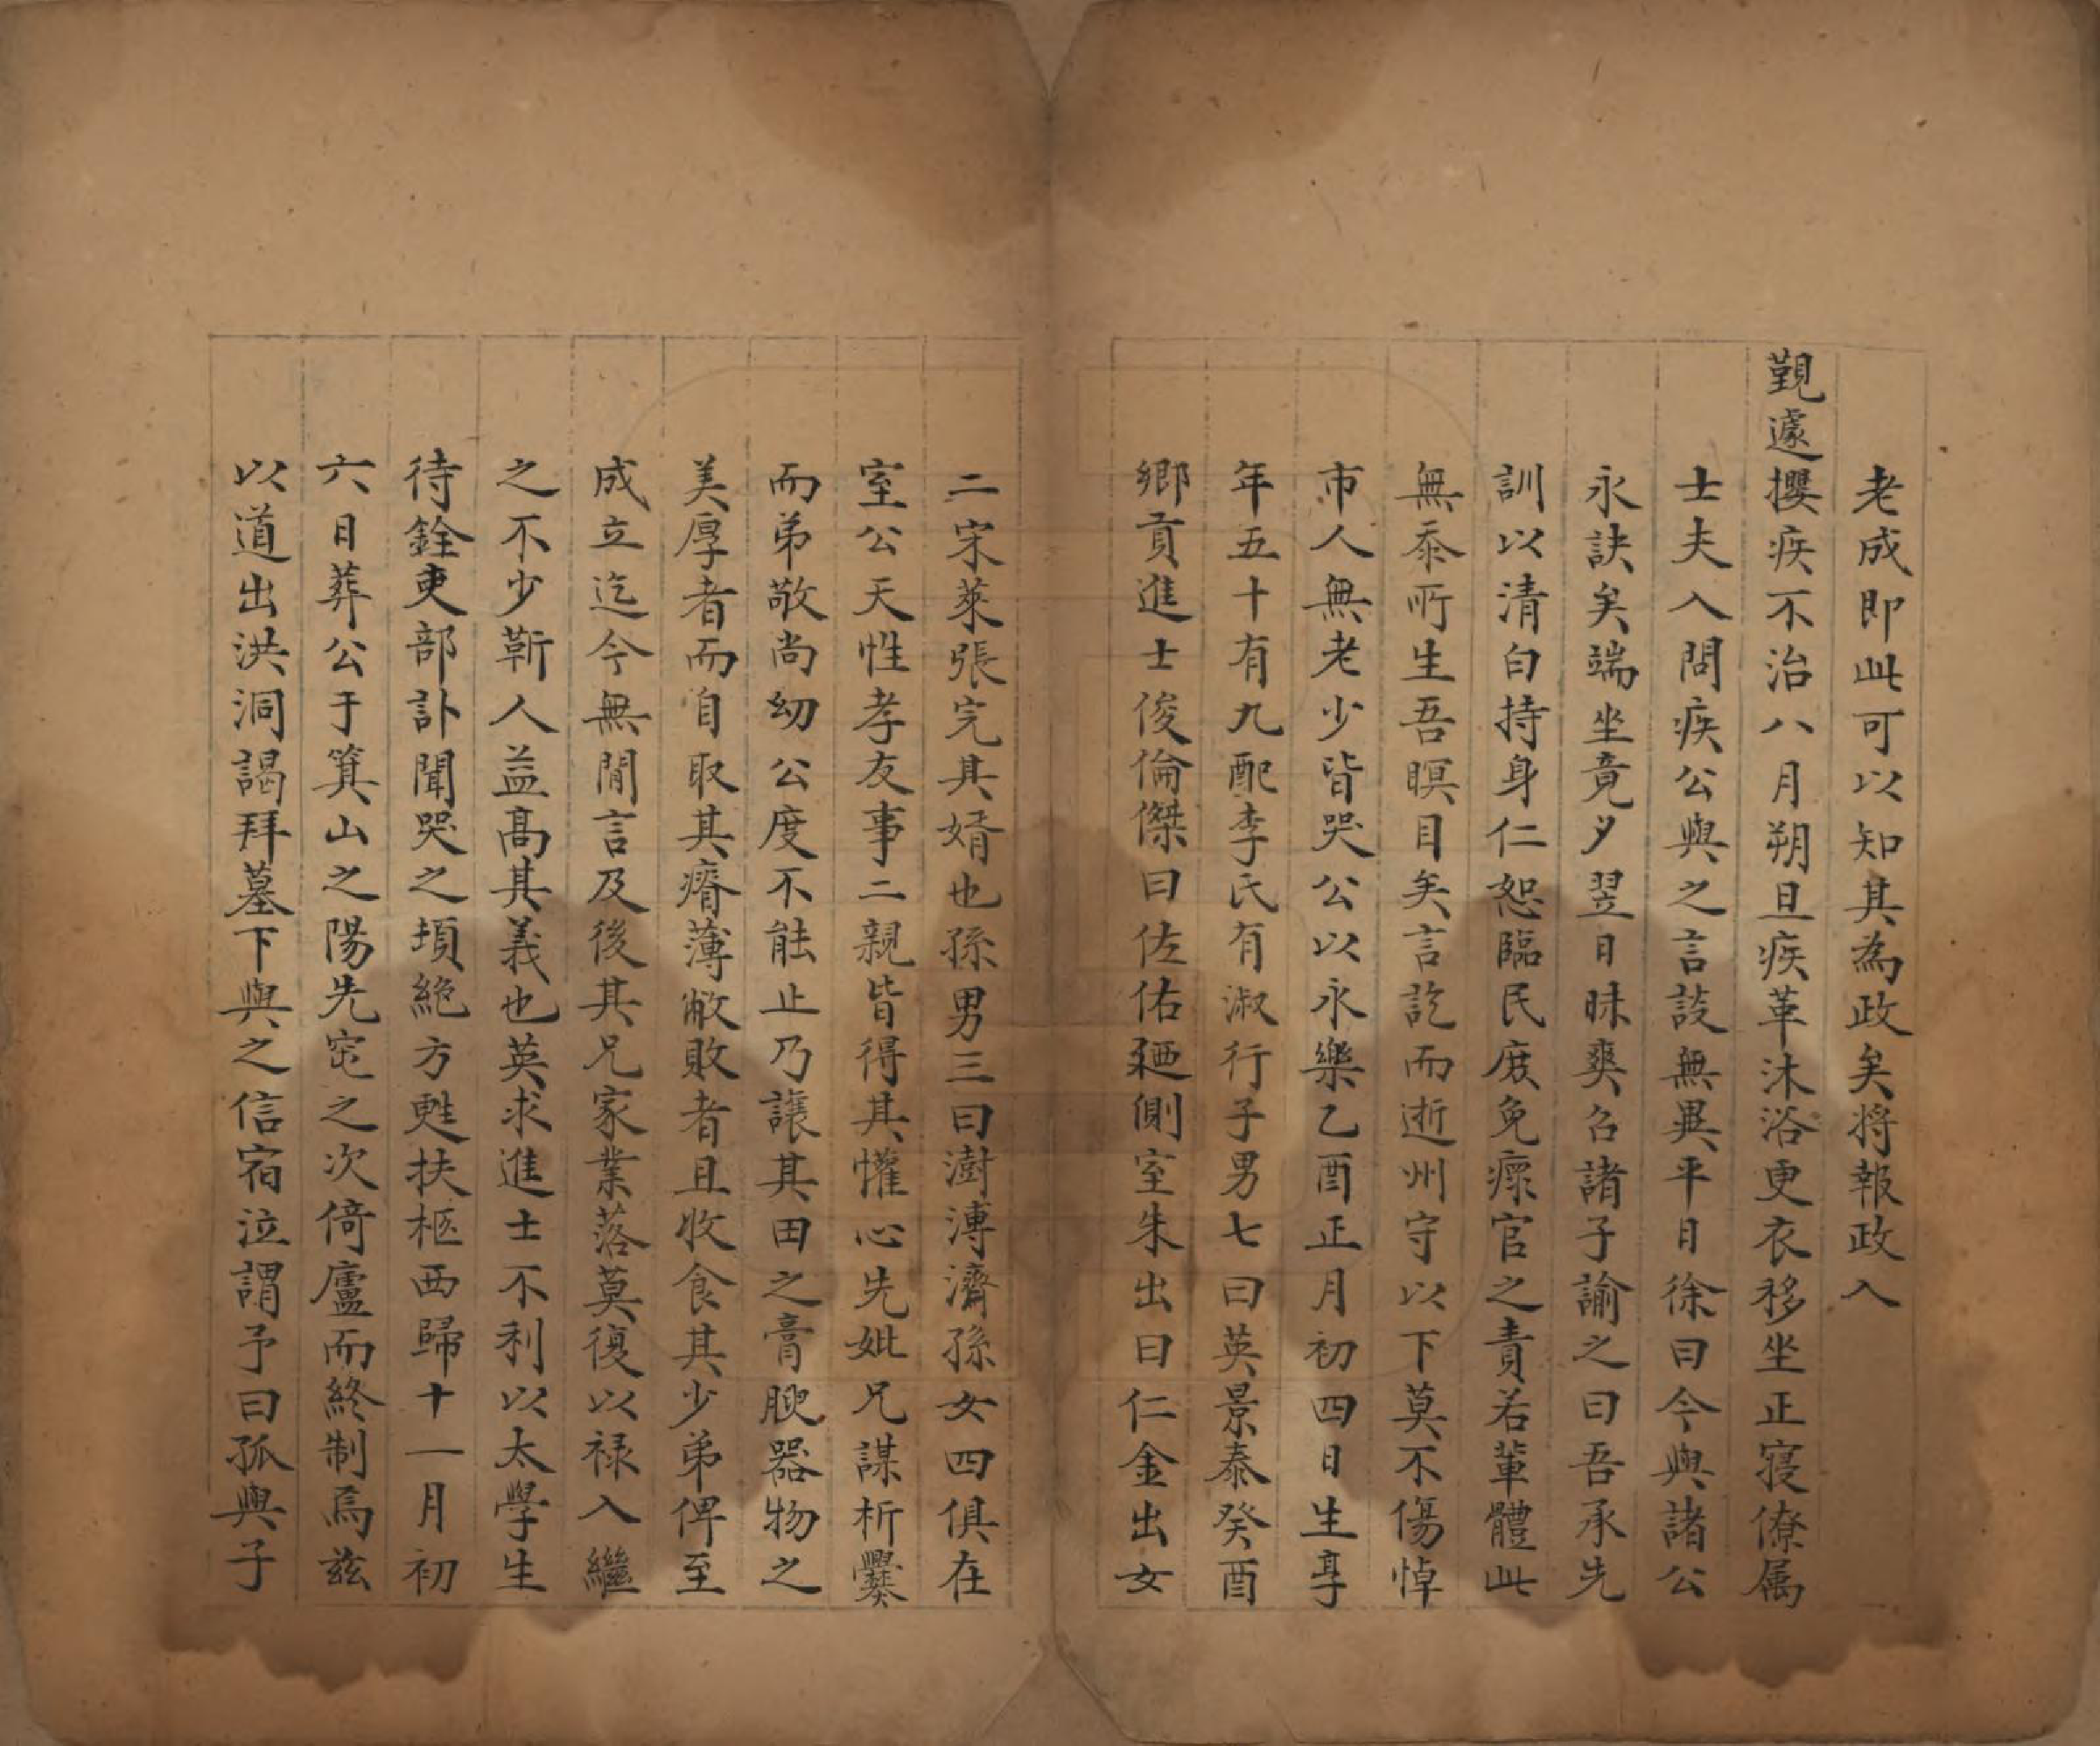 老成即此可以知其為政矣將報政入
覲遽攖疾不治八月朔旦疾革沐浴更衣移坐正寢僚属
士夫入問疾公與之言談無異平日徐曰今與諸公
永訣矣端坐竟夕翌日昧爽召諸子諭之曰吾承先
訓以清白持身仁恕臨民庻免瘝官之責若輩體此
無忝所生吾瞑目矣言訖而逝州守以下莫不傷悼
市人無老少皆哭公以永樂乙酉正月初四日生享
年五十有九配李氏有淑行子男七曰英景泰癸酉
鄉貢進士俊倫傑曰佐佑廼側室朱出曰仁金出女
二宋萊張完其婿也孫男三曰澍溥濟孫女四俱在
室公天性孝友事二親皆得其懽心先妣兄謀析爨
而弟敬尚幼公度不能止乃讓其田之膏腴器物之
美厚者而自取其瘠薄敝敗者且收食其少弟俾至
成立迄今無閒言及後其兄家業落莫復以禄入繼
之不少靳人益高其義也英求進士不利以太學生
待銓吏部訃聞哭之頓絶方甦扶柩西歸十一月初
六日葬公于箕山之陽先窀之次倚廬而終制焉兹
以道出洪洞謁拜墓下與之信宿泣謂予曰孤與子